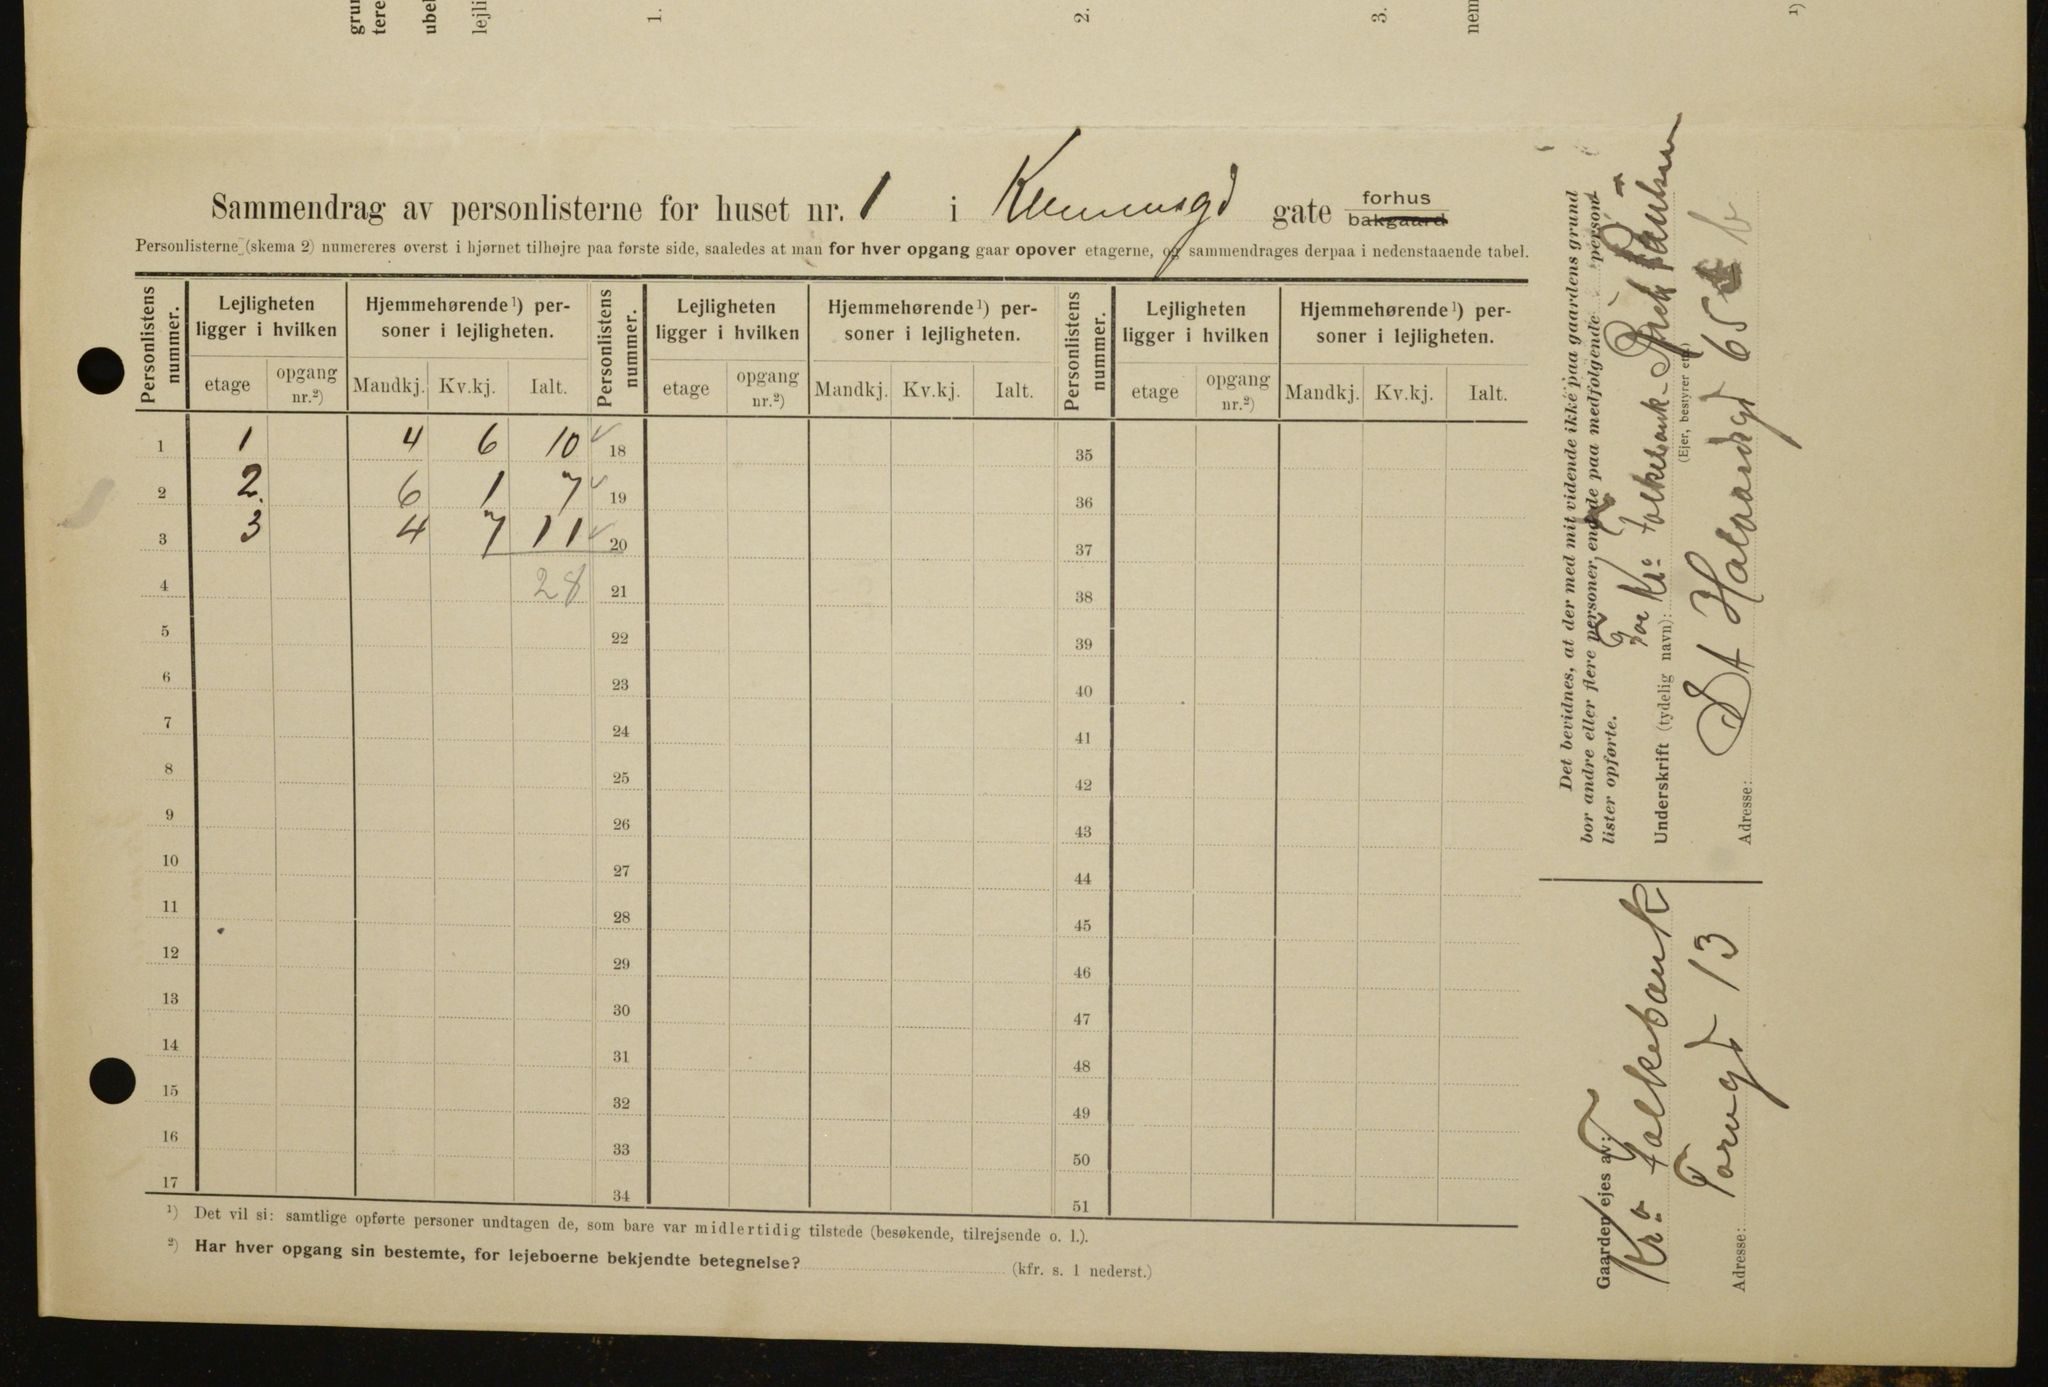 Sammendrag av personlisterne for huset nr. 1 i gate forhus bakgaard
Personlisterne (skema 2) numereres øverst i hjørnet tilhøjre paa første side, saaledes at man for hver opgang gaar opover etagerne, og sammendrages derpaa i nedenstaaende tabel.
Personlistens nummer. Lejligheten ligger i hvilken Hjemmehørende¹) personer i lejligheten. Personlistens nummer. Lejligheten ligger i hvilken Hjemmehørende¹) personer i lejligheten. Personlistens nummer. Lejligheten ligger i hvilken Hjemmehørende¹) personer i lejligheten.
etage opgang nr.²) Mandkj. Kv.kj. Ialt. etage opgang nr.²) Mandkj. Kv.kj. Ialt. etage opgang nr.²) Mandkj. Kv.kj. Ialt.
1 1 4 6 10 18 35
2 2. 6 1 7 19 36
3 3 4 7 11 20 37
4 28 21 38
5 22 39
6 23 40
7 24 41
8 25 42
9 26 43
10 27 44
11 28 45
12 29 46
13 30 47
14 31 48
15 32 49
16 33 50
17 34 51
¹) Det vil si: samtlige opførte personer undtagen de, som bare var midlertidig tilstede (besøkende, tilrejsende o. l.).
²) Har hver opgang sin bestemte, for lejeboerne bekjendte betegnelse? (kfr. s. 1 nederst.)
Det bevidnes, at der med mit vidende ikke paa gaardens grund
bor andre eller flere personer, end de paa medfølgende person-
lister opførte.
For Kra Folkebank
Underskrift (tydelig navn):
(Ejer, bestyrer etc.)
Adresse: St Halvardsgt 65 b
Gaarden ejes av:
Kra Folkebank
Adresse: Torvgt 13
grun
tere
ubel
lejli
1.
2.
3.
nem
¹)